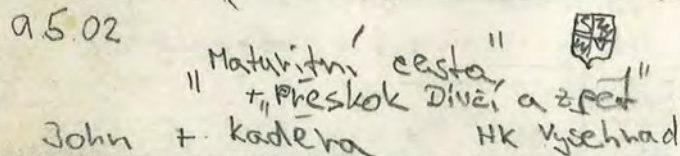 9.5.02
"Maturitní cesta"
+ "Přeskok Dívčí a zpět"
John + Kaděra HK Vyšehrad